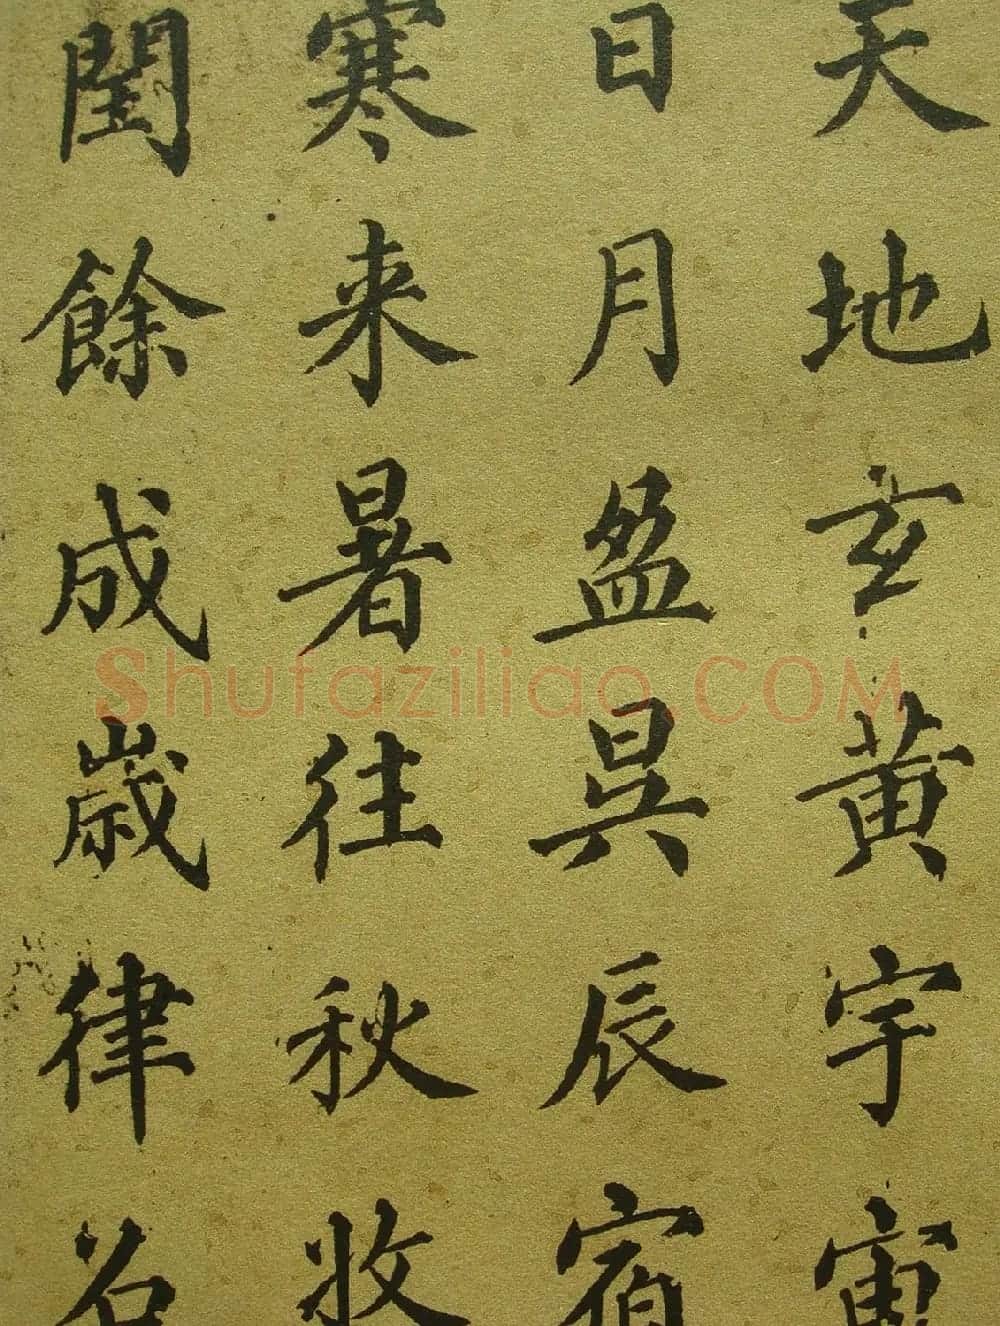 天地玄黄宇宙
日月盈昃辰宿
寒来暑往秋收
閏餘成歳律召
Shufaziliao.COM